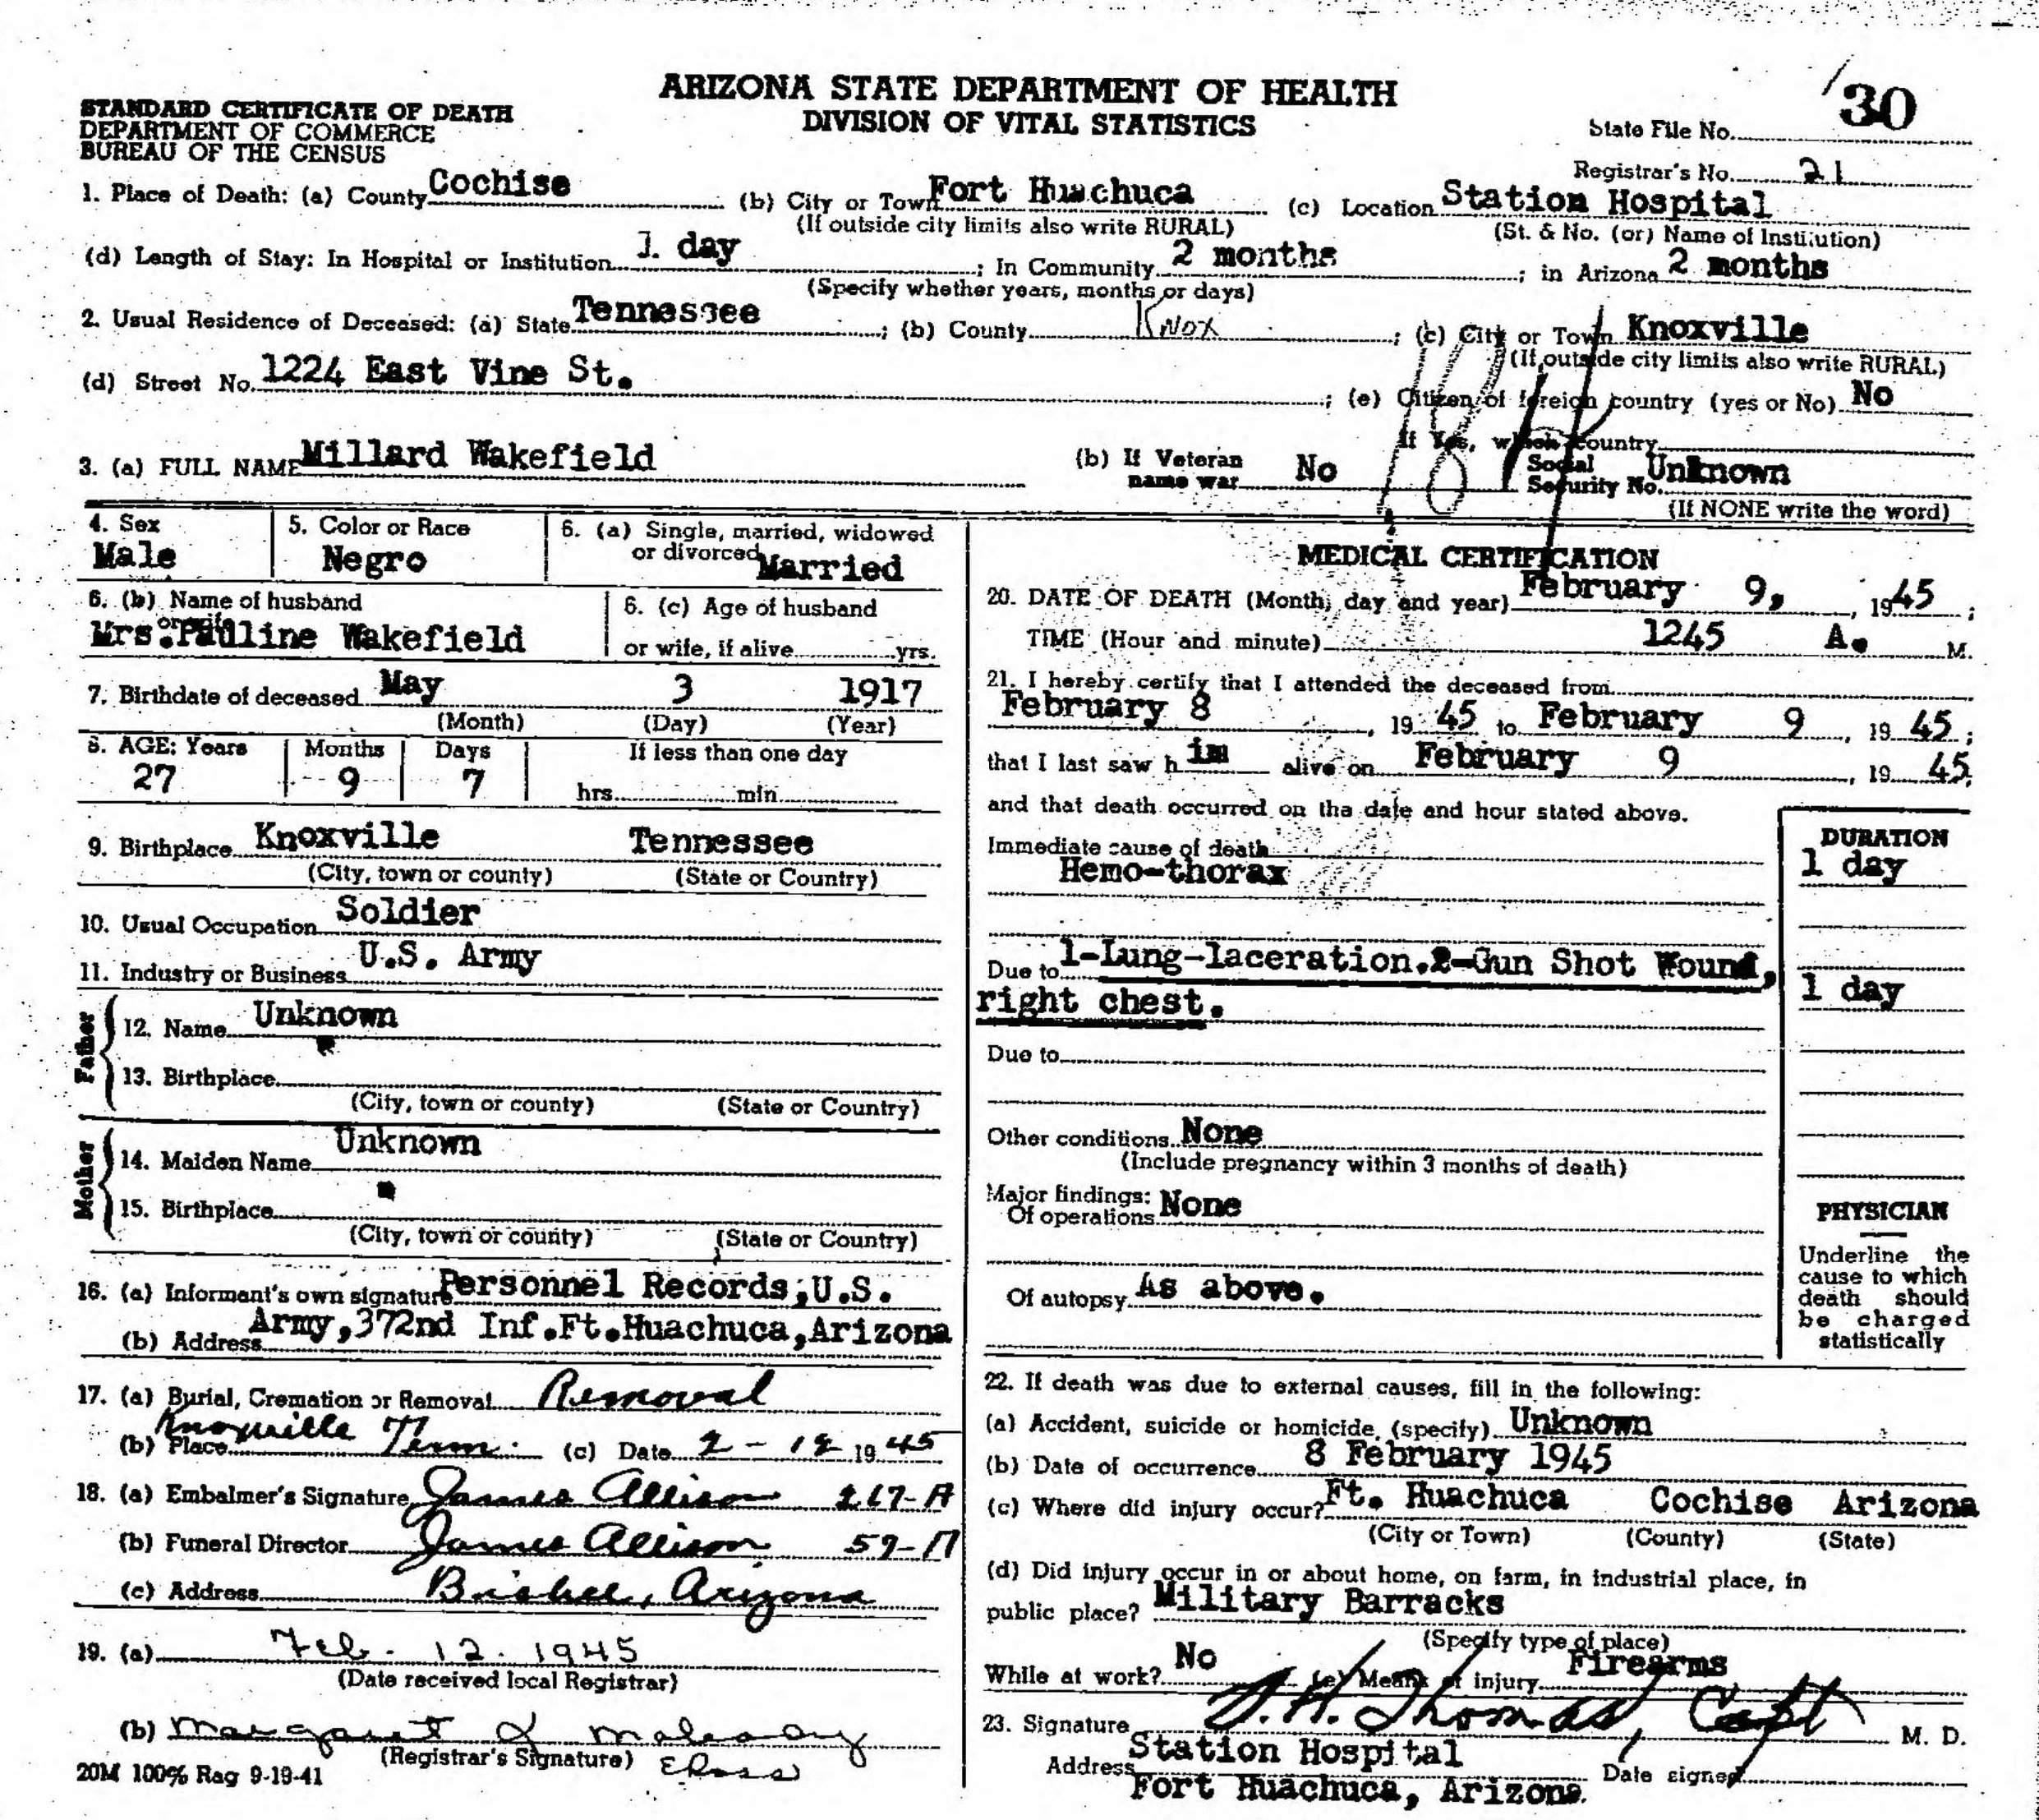 ARIZONA STATE DEPARTMENT OF HEALTH
DIVISION OF VITAL STATISTICS
STANDARD CERTIFICATE OF DEATH
DEPARTMENT OF COMMERCE
BUREAU OF THE CENSUS
State File No. 130
Registrar's No. 21
1. Place of Death: (a) County Cochise (b) City or Town Fort Huachuca (c) Location Station Hospital
(If outside city limits also write RURAL) (St. & No. (or) Name of Institution)
(d) Length of Stay: In Hospital or Institution 1 day ; In Community 2 months ; in Arizona 2 months
(Specify whether years, months or days)
2. Usual Residence of Deceased: (a) State Tennessee ; (b) County Knox ; (c) City or Town Knoxville
(If outside city limits also write RURAL)
(d) Street No. 1224 East Vine St. ; (e) Citizen of foreign country (yes or No) No
If Yes, which country
3. (a) FULL NAME Millard Wakefield (b) If Veteran name war No Social Security No. Unknown
(If NONE write the word)
4. Sex Male 5. Color or Race Negro 6. (a) Single, married, widowed or divorced Married
6. (b) Name of husband or wife Mrs. Pauline Wakefield 6. (c) Age of husband or wife, if alive yrs.
7. Birthdate of deceased May 3 1917
(Month) (Day) (Year)
8. AGE: Years Months Days If less than one day
27 9 7 hrs. min.
9. Birthplace Knoxville Tennessee
(City, town or county) (State or Country)
10. Usual Occupation Soldier
11. Industry or Business U.S. Army
Father
12. Name Unknown
13. Birthplace "
(City, town or county) (State or Country)
Mother
14. Maiden Name Unknown
15. Birthplace "
(City, town or county) (State or Country)
16. (a) Informant's own signature Personnel Records, U.S.
(b) Address Army, 372nd Inf. Ft. Huachuca, Arizona
17. (a) Burial, Cremation or Removal Removal
(b) Place Knoxville Tenn. (c) Date 2-12 1945
18. (a) Embalmer's Signature James Allison 267-A
(b) Funeral Director James Allison 59-A
(c) Address Bisbee, Arizona
19. (a) Feb. 12. 1945
(Date received local Registrar)
(b) Margaret
(Registrar's Signature)
20M 100% Rag 9-19-41
MEDICAL CERTIFICATION
20. DATE OF DEATH (Month, day and year) February 9, , 1945;
TIME (Hour and minute) 1245 A. M.
21. I hereby certify that I attended the deceased from
February 8 , 1945 to February 9 , 1945;
that I last saw him alive on February 9 , 1945;
and that death occurred on the date and hour stated above.
Immediate cause of death
Hemo-thorax
DURATION
1 day
Due to 1-Lung-laceration.2-Gun Shot Wound,
right chest.
1 day
Due to
Other conditions None
(Include pregnancy within 3 months of death)
Major findings:
Of operations None
Of autopsy As above.
PHYSICIAN
Underline the
cause to which
death should
be charged
statistically
22. If death was due to external causes, fill in the following:
(a) Accident, suicide or homicide, (specify) Unknown
(b) Date of occurrence 8 February 1945
(c) Where did injury occur? Ft. Huachuca Cochise Arizona
(City or Town) (County) (State)
(d) Did injury occur in or about home, on farm, in industrial place, in
public place? Military Barracks
(Specify type of place)
While at work? No (e) Means of injury Firearms
23. Signature Thomas, Capt M. D.
Address Station Hospital Date signed
Fort Huachuca, Arizona.